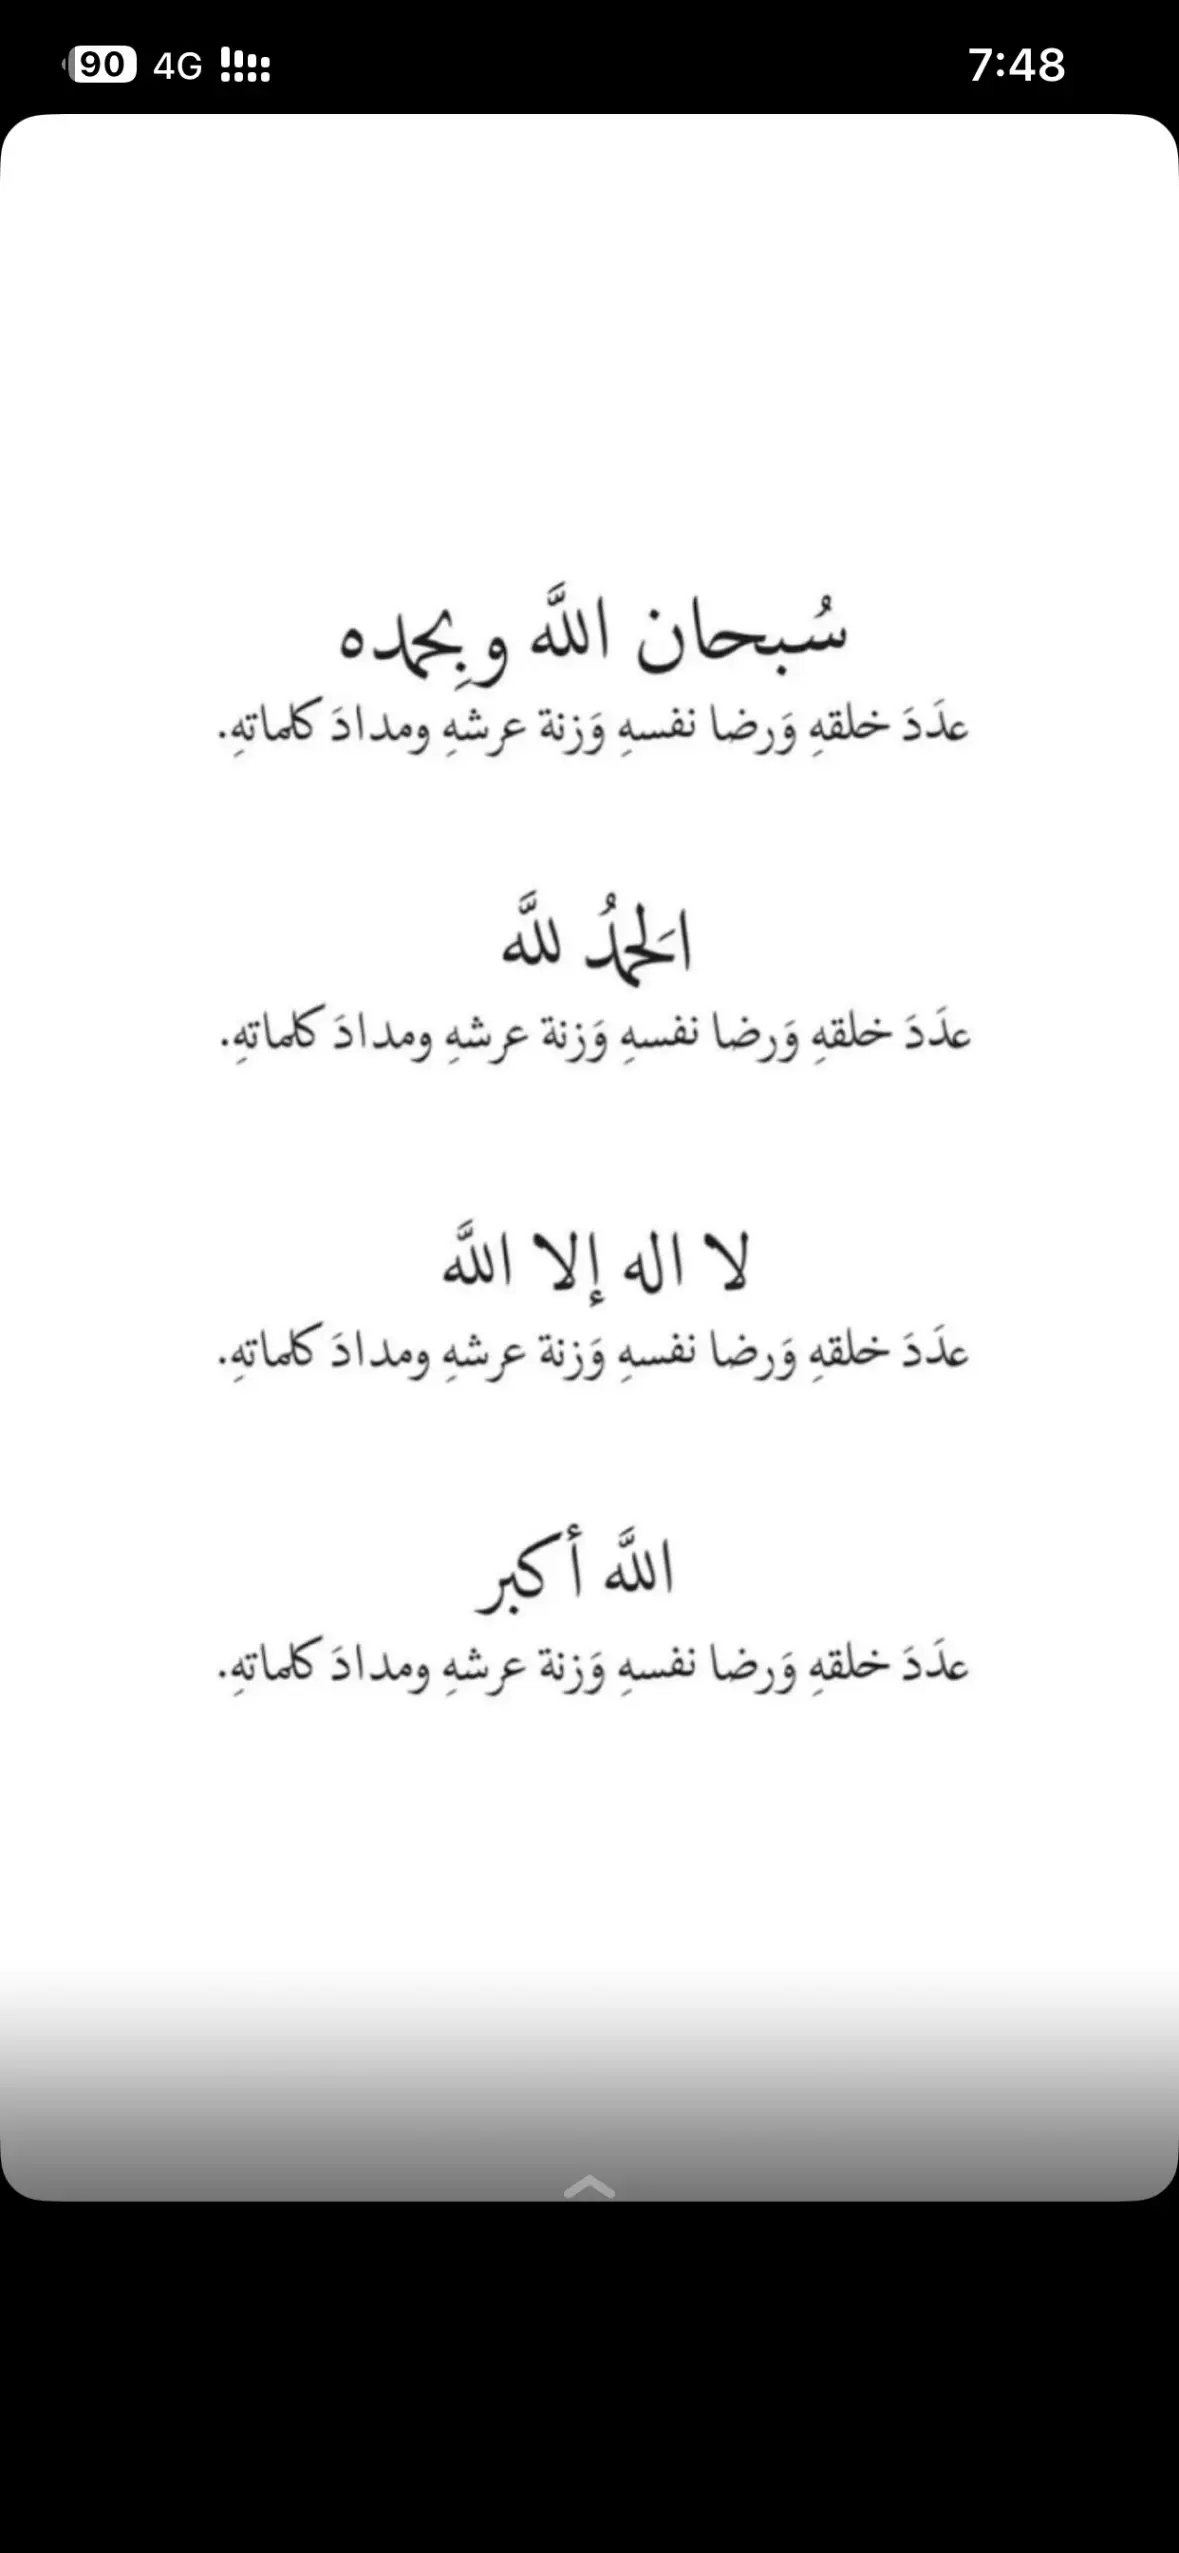 90 4G 7:48
سُبحان اللَّه وبِحمده
عدَدَ خلقهِ وَرضا نفسهِ وَزنة عرشهِ ومدادَ كلماتهِ.
الَحمدُ للَّه
عدَدَ خلقهِ وَرضا نفسهِ وَزنة عرشهِ ومدادَ كلماتهِ.
لا اله إلا اللَّه
عدَدَ خلقهِ وَرضا نفسهِ وَزنة عرشهِ ومدادَ كلماتهِ.
اللَّه أكبر
عدَدَ خلقهِ وَرضا نفسهِ وَزنة عرشهِ ومدادَ كلماتهِ.